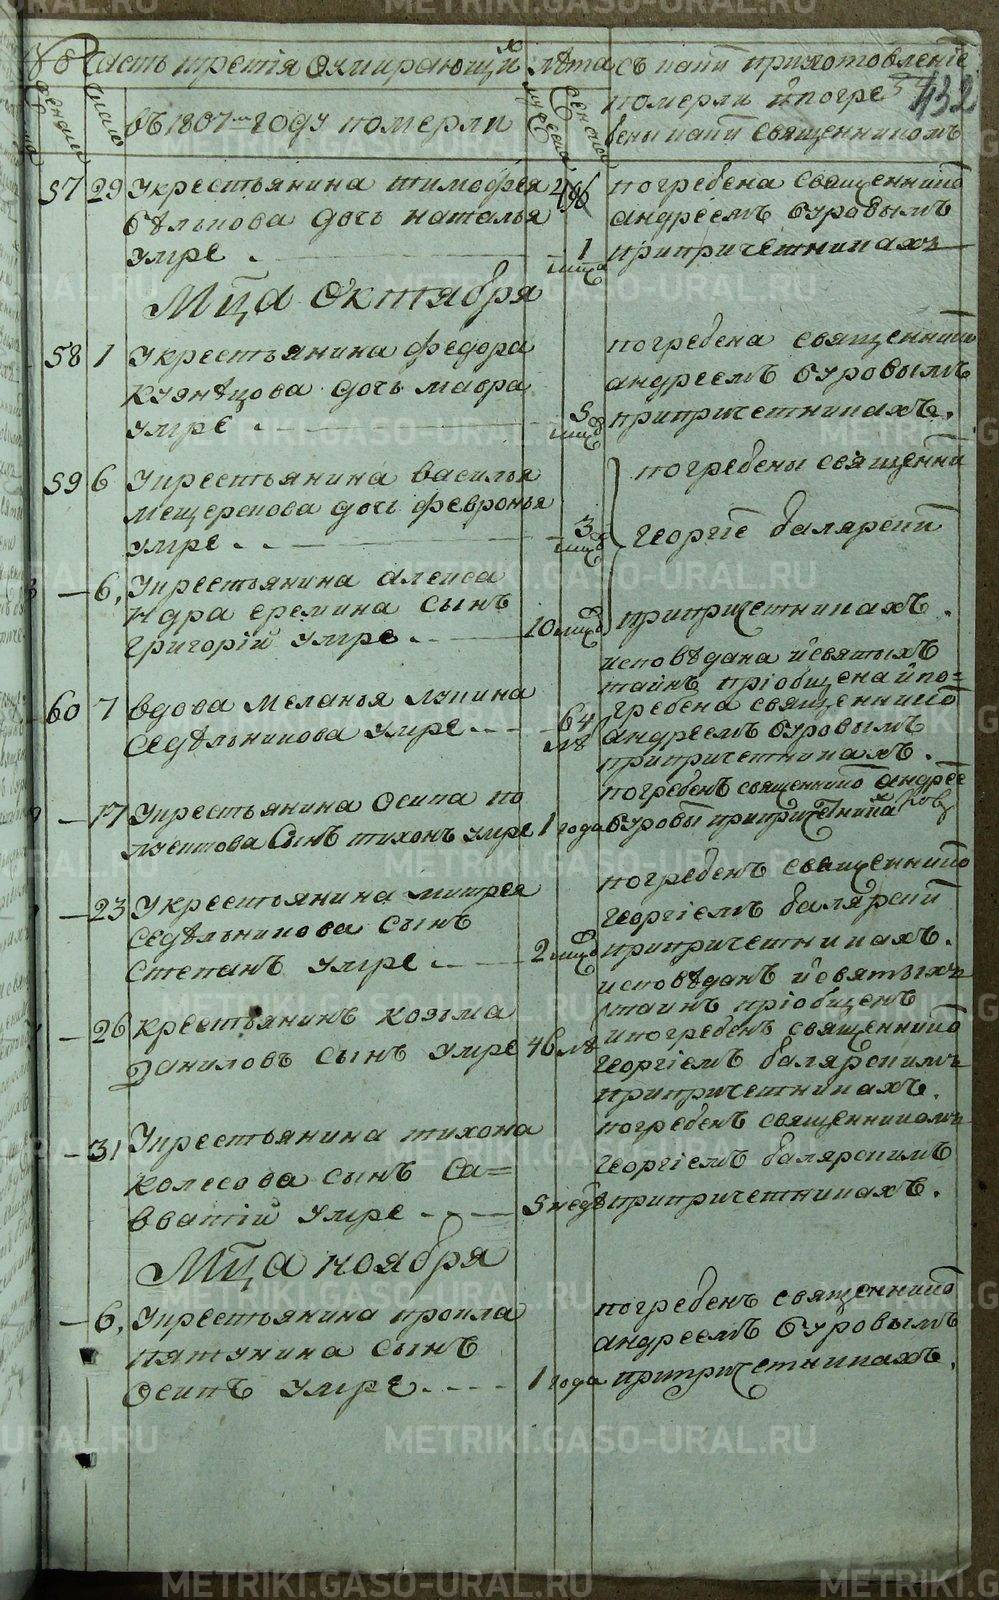 Часть третія о умирающих
лѣта
съ какимъ приуготовленіе
въ 1807м году померли
померли и погре
432
бены каким священникомъ
57 29 У крестьянина тимофея
бѣлкова дочь наталья
умре
1
мца
погребена священнико
андреемъ буровымъ
при причетникахъ
Мца Октября
58 1 У крестьянина федора
кузнѣцова дочь мавра
умре
5
мцъ
погребена священнико
андреемъ буровымъ
при причетникахъ.
59 6 У крестьянина василья
мещерекова дочь февронья
умре
3
мцъ
погребены священни
георгіе балярски
6, У крестьянина алекса
ндра еремина сынъ
григорій умре
10 мцъ
при причетникахъ.
60 7 вдова меланья лукина
седѣльникова умре
64
лѣ
исповѣдана и святыхъ
таинъ пріобщена и по=
гребена священнико
андреемъ буровымъ
при причетникахъ.
17 У крестьянина осипа по
сынъ тихонъ умре
1 года
погребенъ священнико андрее
буровы при причетника
23 У крестьянина митрея
седѣльникова сынъ
степанъ умре
2 мцъ
погребенъ священнико
георгіемъ балярски
при причетникахъ.
26 крестьянинъ козма
даниловъ сынъ умре
46 лѣ
исповѣданъ и святыхъ
таинъ пріобщенъ
и погребенъ священнико
георгіемъ балярскимъ
при причетникахъ.
31 У крестьянина тихона
колесова сынъ са=
вватій умре
5 недѣ
погребенъ священникомъ
георгіемъ балярскимъ
при причетникахъ.
Мца ноября
6, У крестьянина прокла
пятунина сынъ
осипъ умре
1 года
погребенъ священнико
андреемъ буровымъ
при причетникахъ.
METRIKI.GASO-URAL.RU